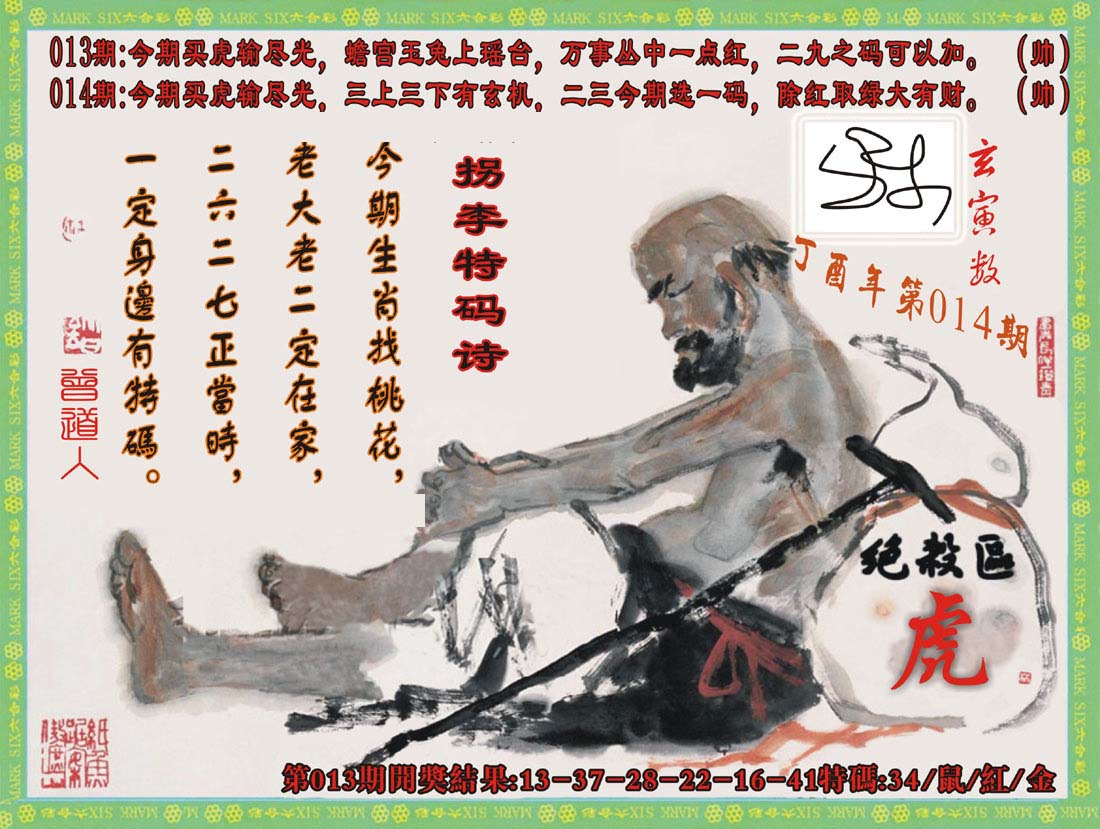 MARK SIX六合彩 MARK SIX六合彩 MARK SIX六合彩 MARK SIX六合彩 MARK SIX六合彩 MARK SIX六合彩
013期:今期买虎输尽光，蟾宫玉兔上瑶台，万事丛中一点红，二九之码可以加。 (帅)
014期:今期买虎输尽光，三上三下有玄机，二三今期选一码，除红取绿大有财。 (帅)
玄寅数
丁酉年第014期
拐李特码诗
今期生肖找桃花，
老大老二定在家，
二六二七正當時，
一定身邊有特碼。
曾道人
绝殺區
虎
第013期開獎結果:13-37-28-22-16-41特碼:34/鼠/紅/金